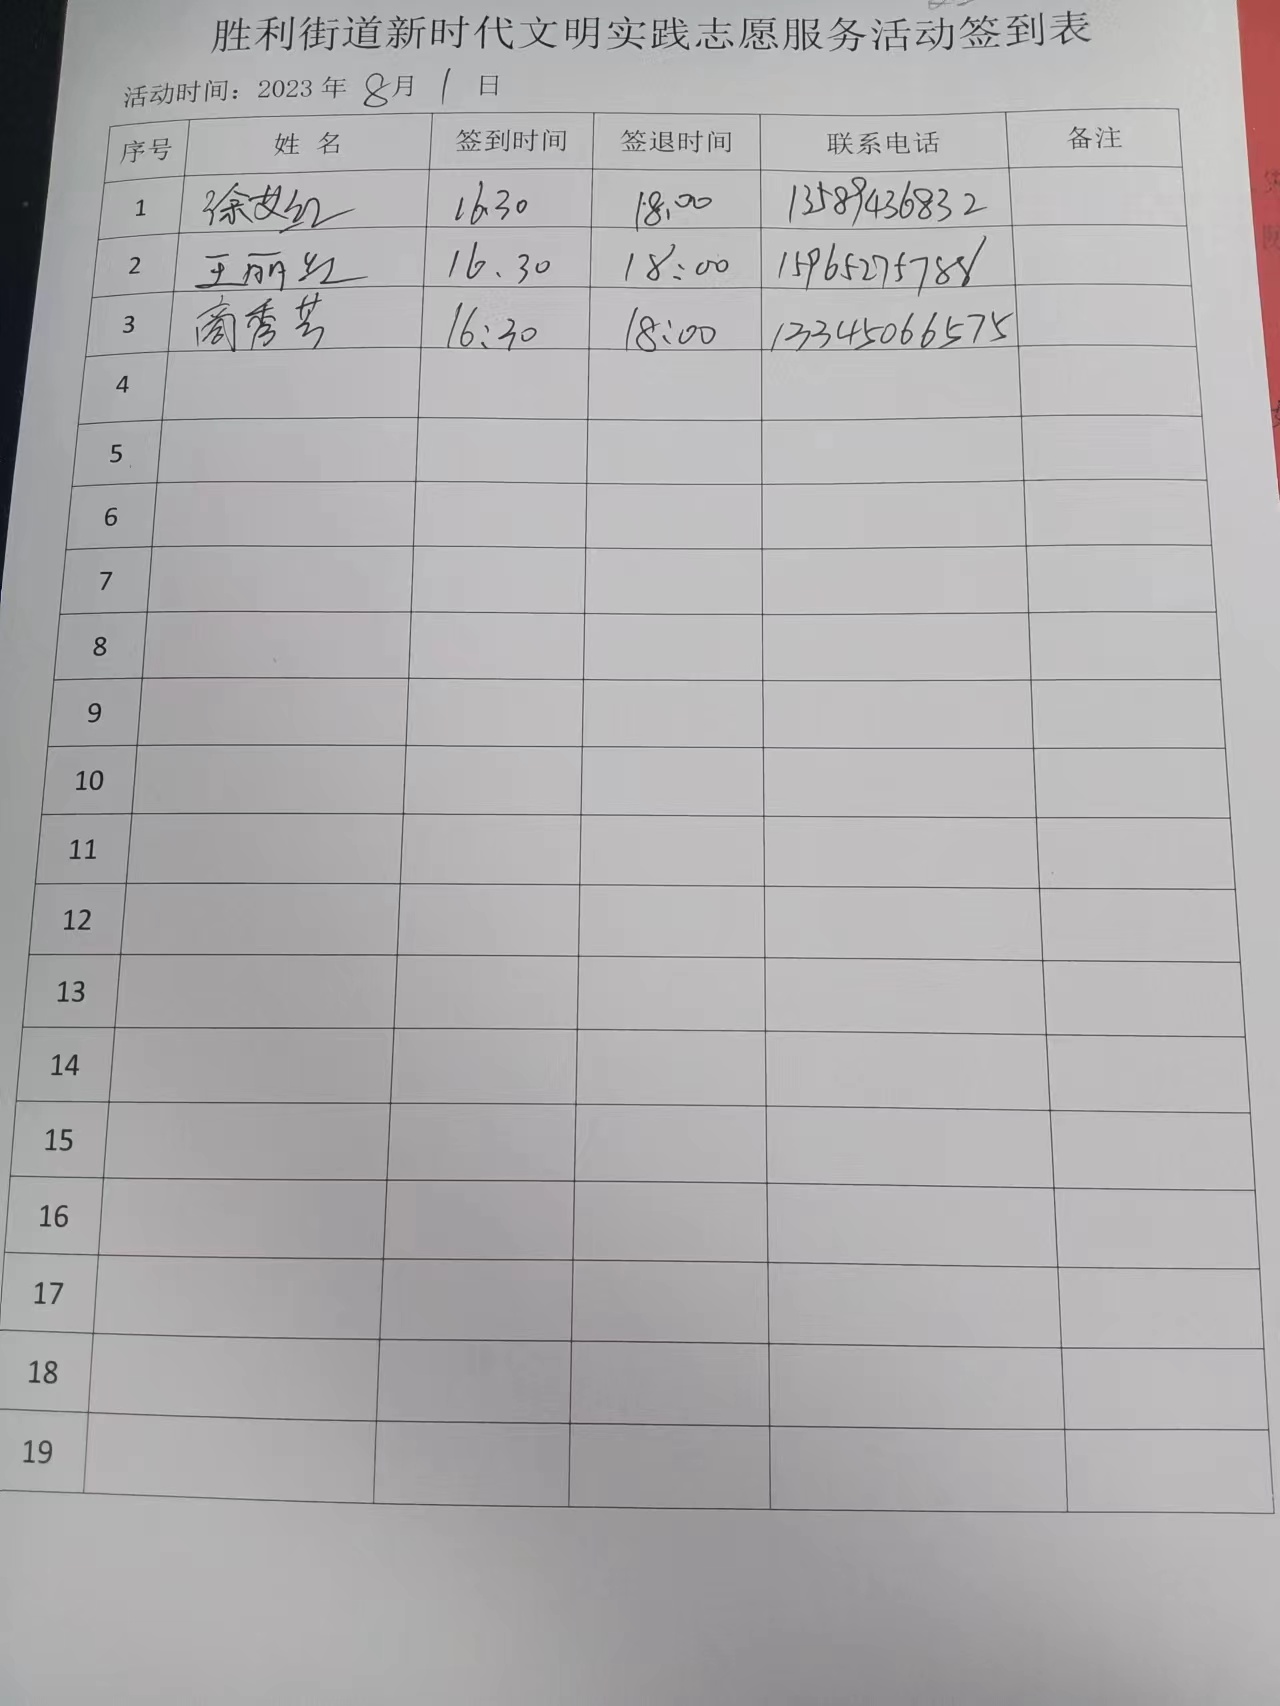 胜利街道新时代文明实践志愿服务活动签到表
活动时间：2023 年 8月 1 日
序号 姓 名 签到时间 签退时间 联系电话 备注
1 徐 红 16.30 18.00 13589436832
2 王丽红 16.30 18:00 15965275788
3 商秀芸 16:30 18:00 13345066575
4
5
6
7
8
9
10
11
12
13
14
15
16
17
18
19